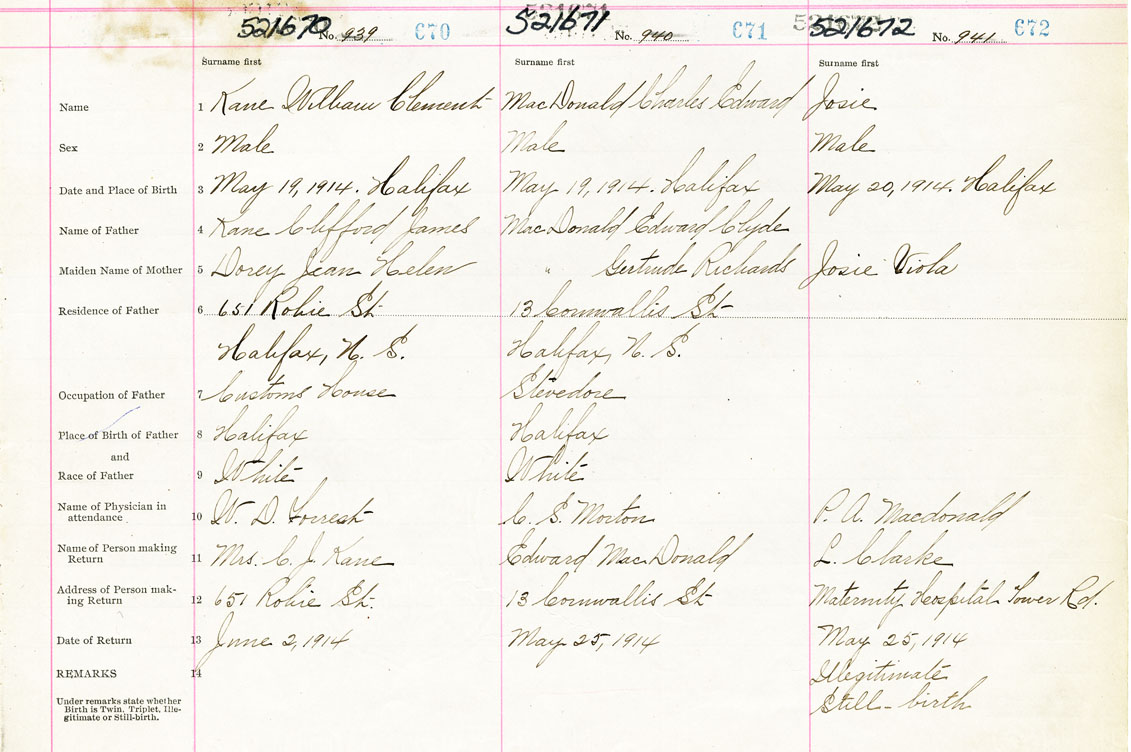 521670 No. 939 670 521671 No. 940 671 521672 No. 941 672
Surname first Surname first Surname first
Name 1 Kane William Clement MacDonald Charles Edward Josie
Sex 2 Male Male Male
Date and Place of Birth 3 May 19, 1914. Halifax May 19, 1914. Halifax May 20, 1914. Halifax
Name of Father 4 Kane Clifford James MacDonald Edward Clyde
Maiden Name of Mother 5 Dorey Jean Helen " Gertrude Richards Josie Viola
Residence of Father 6 651 Robie St. 13 Cornwallis St.
Halifax, N. S. Halifax, N. S.
Occupation of Father 7 Customs House Stevedore
Place of Birth of Father 8 Halifax Halifax
and
Race of Father 9 White White
Name of Physician in
attendance 10 W. D. Forrest C. S. Morton P. A. Macdonald
Name of Person making
Return 11 Mrs. C. J. Kane Edward MacDonald L. Clarke
Address of Person mak-
ing Return 12 651 Robie St. 13 Cornwallis St. Maternity Hospital Tower Rd.
Date of Return 13 June 2, 1914 May 25, 1914 May 25, 1914
REMARKS 14 Illegitimate
Under remarks state whether
Birth is Twin, Triplet, Ille-
gitimate or Still-birth.
Still-birth